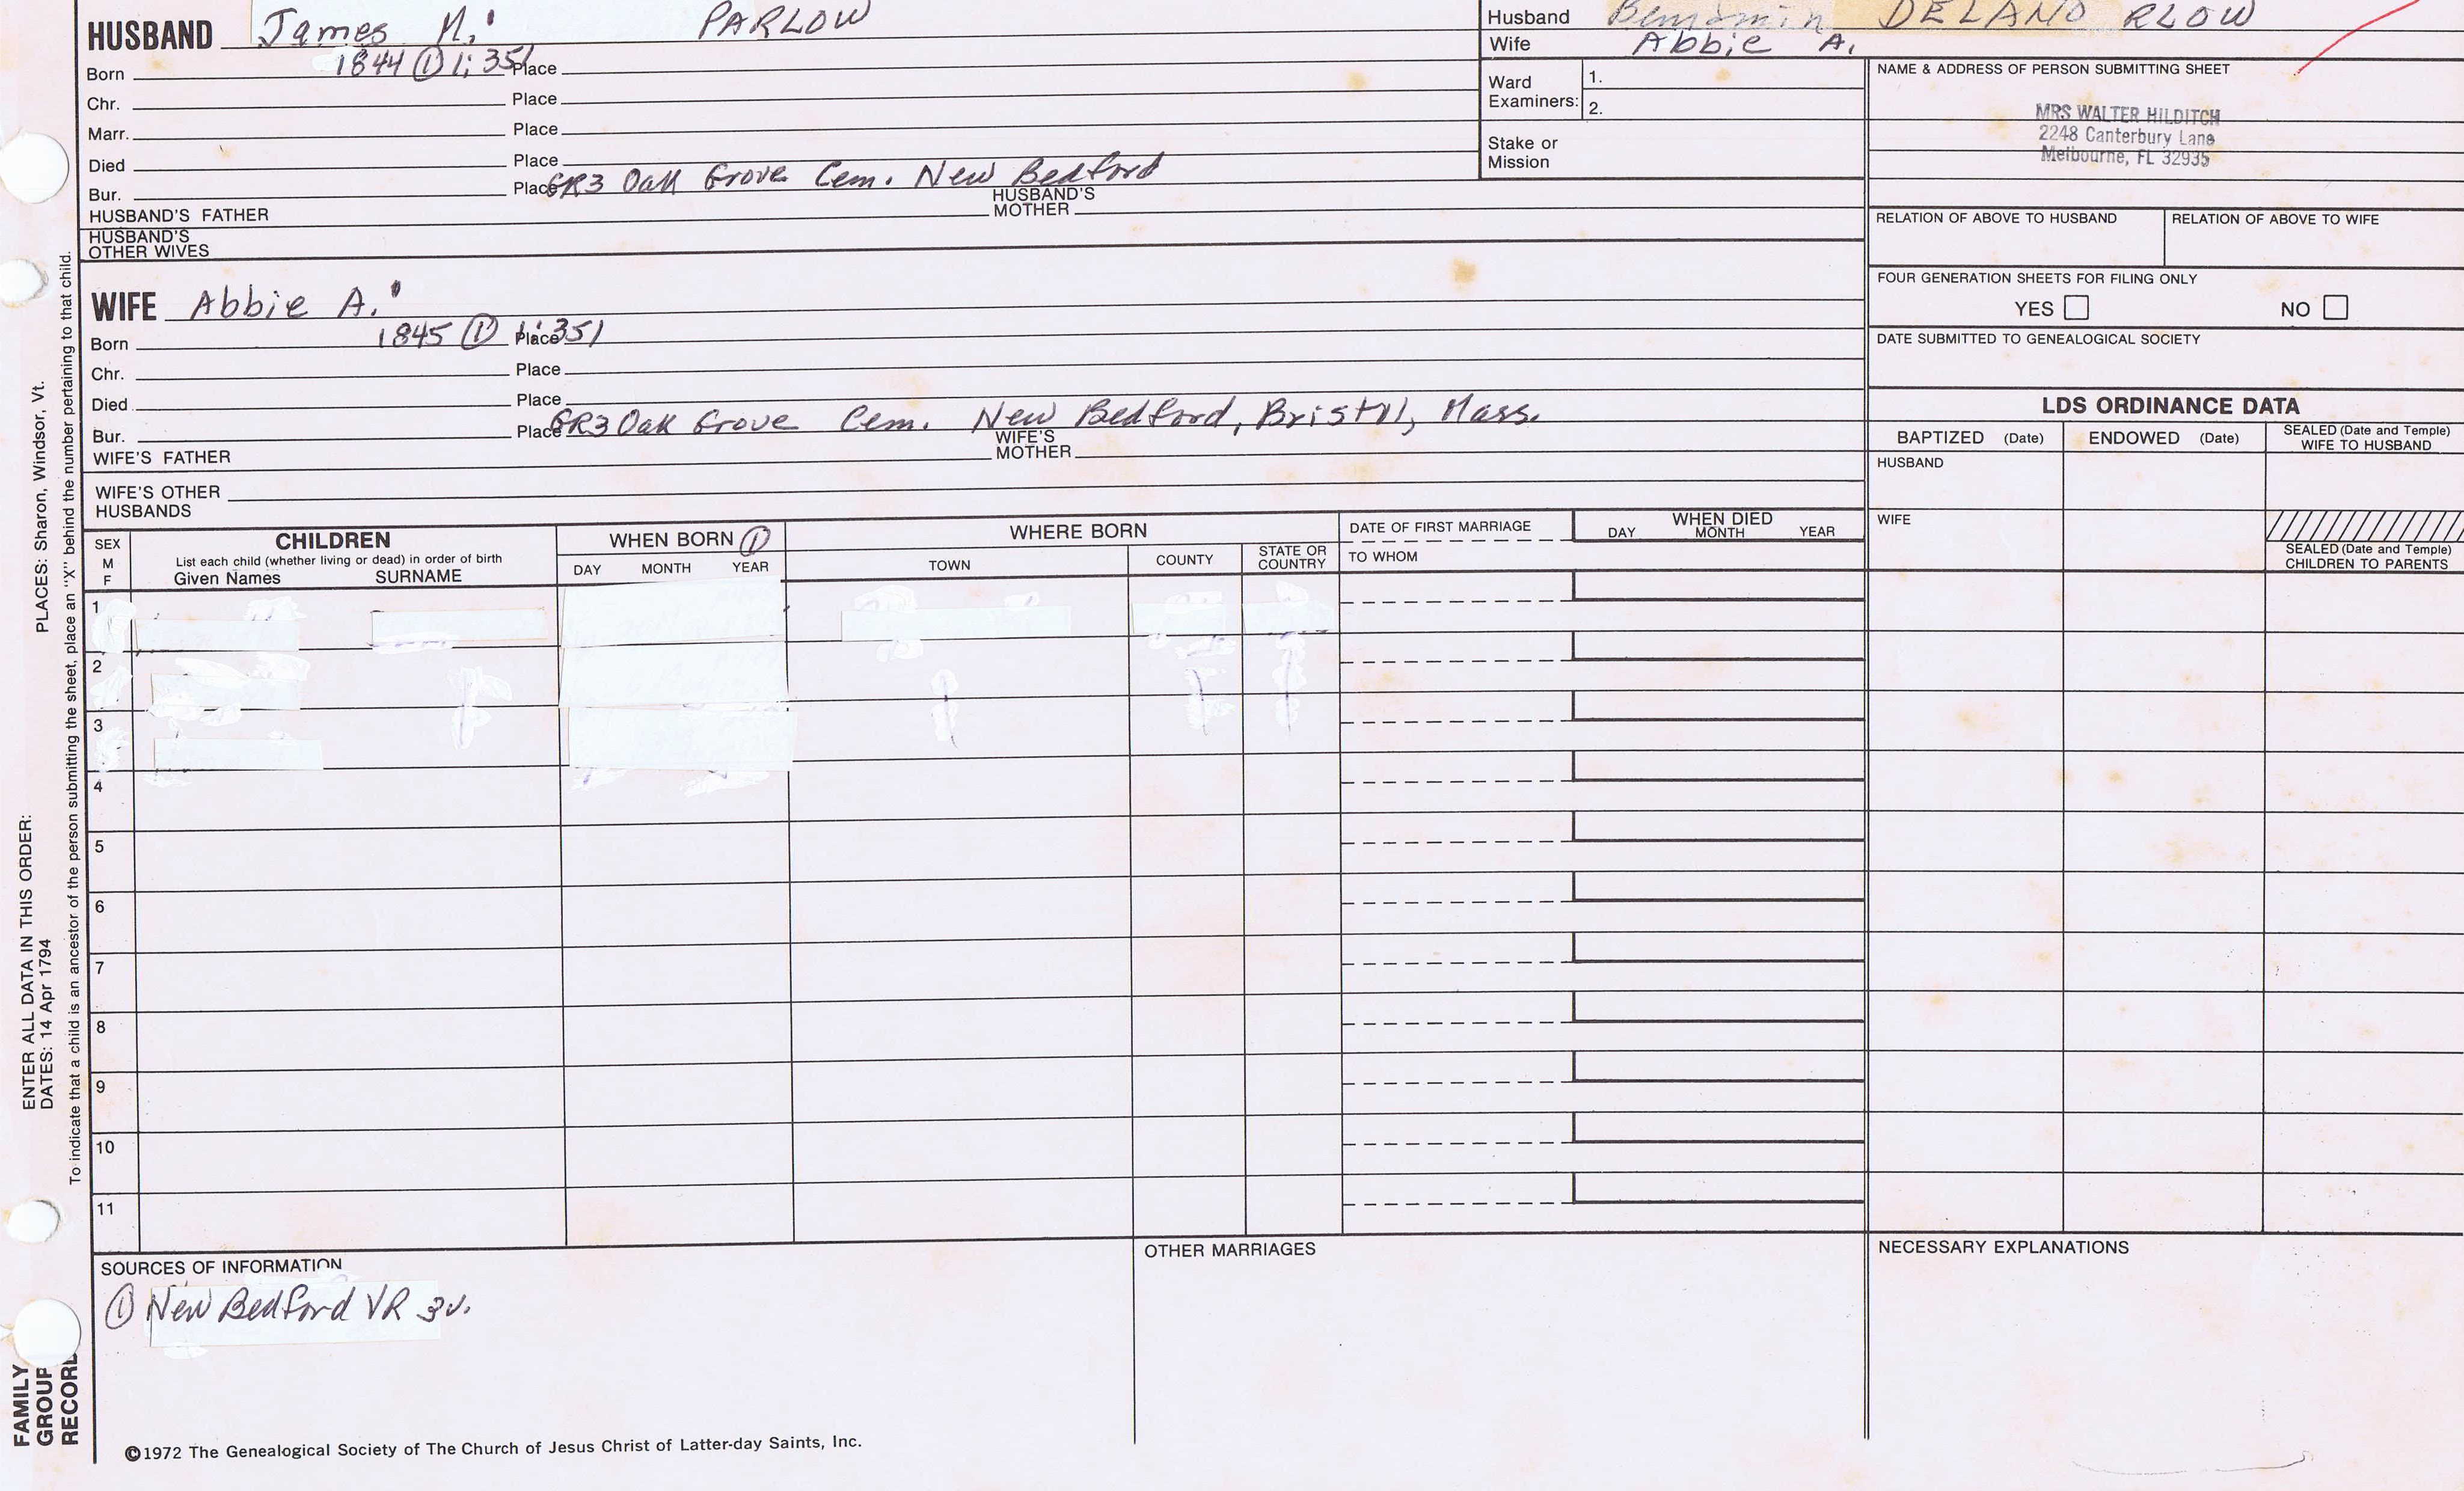 HUSBAND James M. PARLOW
Born 1844 ① 1:351 Place
Chr. Place
Marr. Place
Died Place
Bur. Place GR3 Oak Grove Cem. New Bedford
HUSBAND'S FATHER HUSBAND'S MOTHER
HUSBAND'S OTHER WIVES
Husband Benjamin DELANO RLOW
Wife Abbie A.
Ward Examiners: 1.
2.
Stake or Mission
NAME & ADDRESS OF PERSON SUBMITTING SHEET
MRS WALTER HILDITCH
2248 Canterbury Lane
Melbourne, FL 32935
RELATION OF ABOVE TO HUSBAND RELATION OF ABOVE TO WIFE
FOUR GENERATION SHEETS FOR FILING ONLY
YES NO
DATE SUBMITTED TO GENEALOGICAL SOCIETY
WIFE Abbie A.
Born 1845 ① 1:351 Place
Chr. Place
Died Place
Bur. Place GR3 Oak Grove Cem. New Bedford, Bristol, Mass.
WIFE'S FATHER WIFE'S MOTHER
WIFE'S OTHER HUSBANDS
LDS ORDINANCE DATA
BAPTIZED (Date) ENDOWED (Date) SEALED (Date and Temple) WIFE TO HUSBAND
HUSBAND
WIFE
SEALED (Date and Temple) CHILDREN TO PARENTS
SEX M F
CHILDREN
List each child (whether living or dead) in order of birth
Given Names SURNAME
WHEN BORN ①
DAY MONTH YEAR
WHERE BORN
TOWN COUNTY STATE OR COUNTRY
DATE OF FIRST MARRIAGE
TO WHOM
WHEN DIED
DAY MONTH YEAR
1
2
3
4
5
6
7
8
9
10
11
SOURCES OF INFORMATION
① New Bedford VR 3v.
OTHER MARRIAGES
NECESSARY EXPLANATIONS
©1972 The Genealogical Society of The Church of Jesus Christ of Latter-day Saints, Inc.
FAMILY GROUP RECORD
ENTER ALL DATA IN THIS ORDER:
DATES: 14 Apr 1794 PLACES: Sharon, Windsor, Vt.
To indicate that a child is an ancestor of the person submitting the sheet, place an "X" behind the number pertaining to that child.